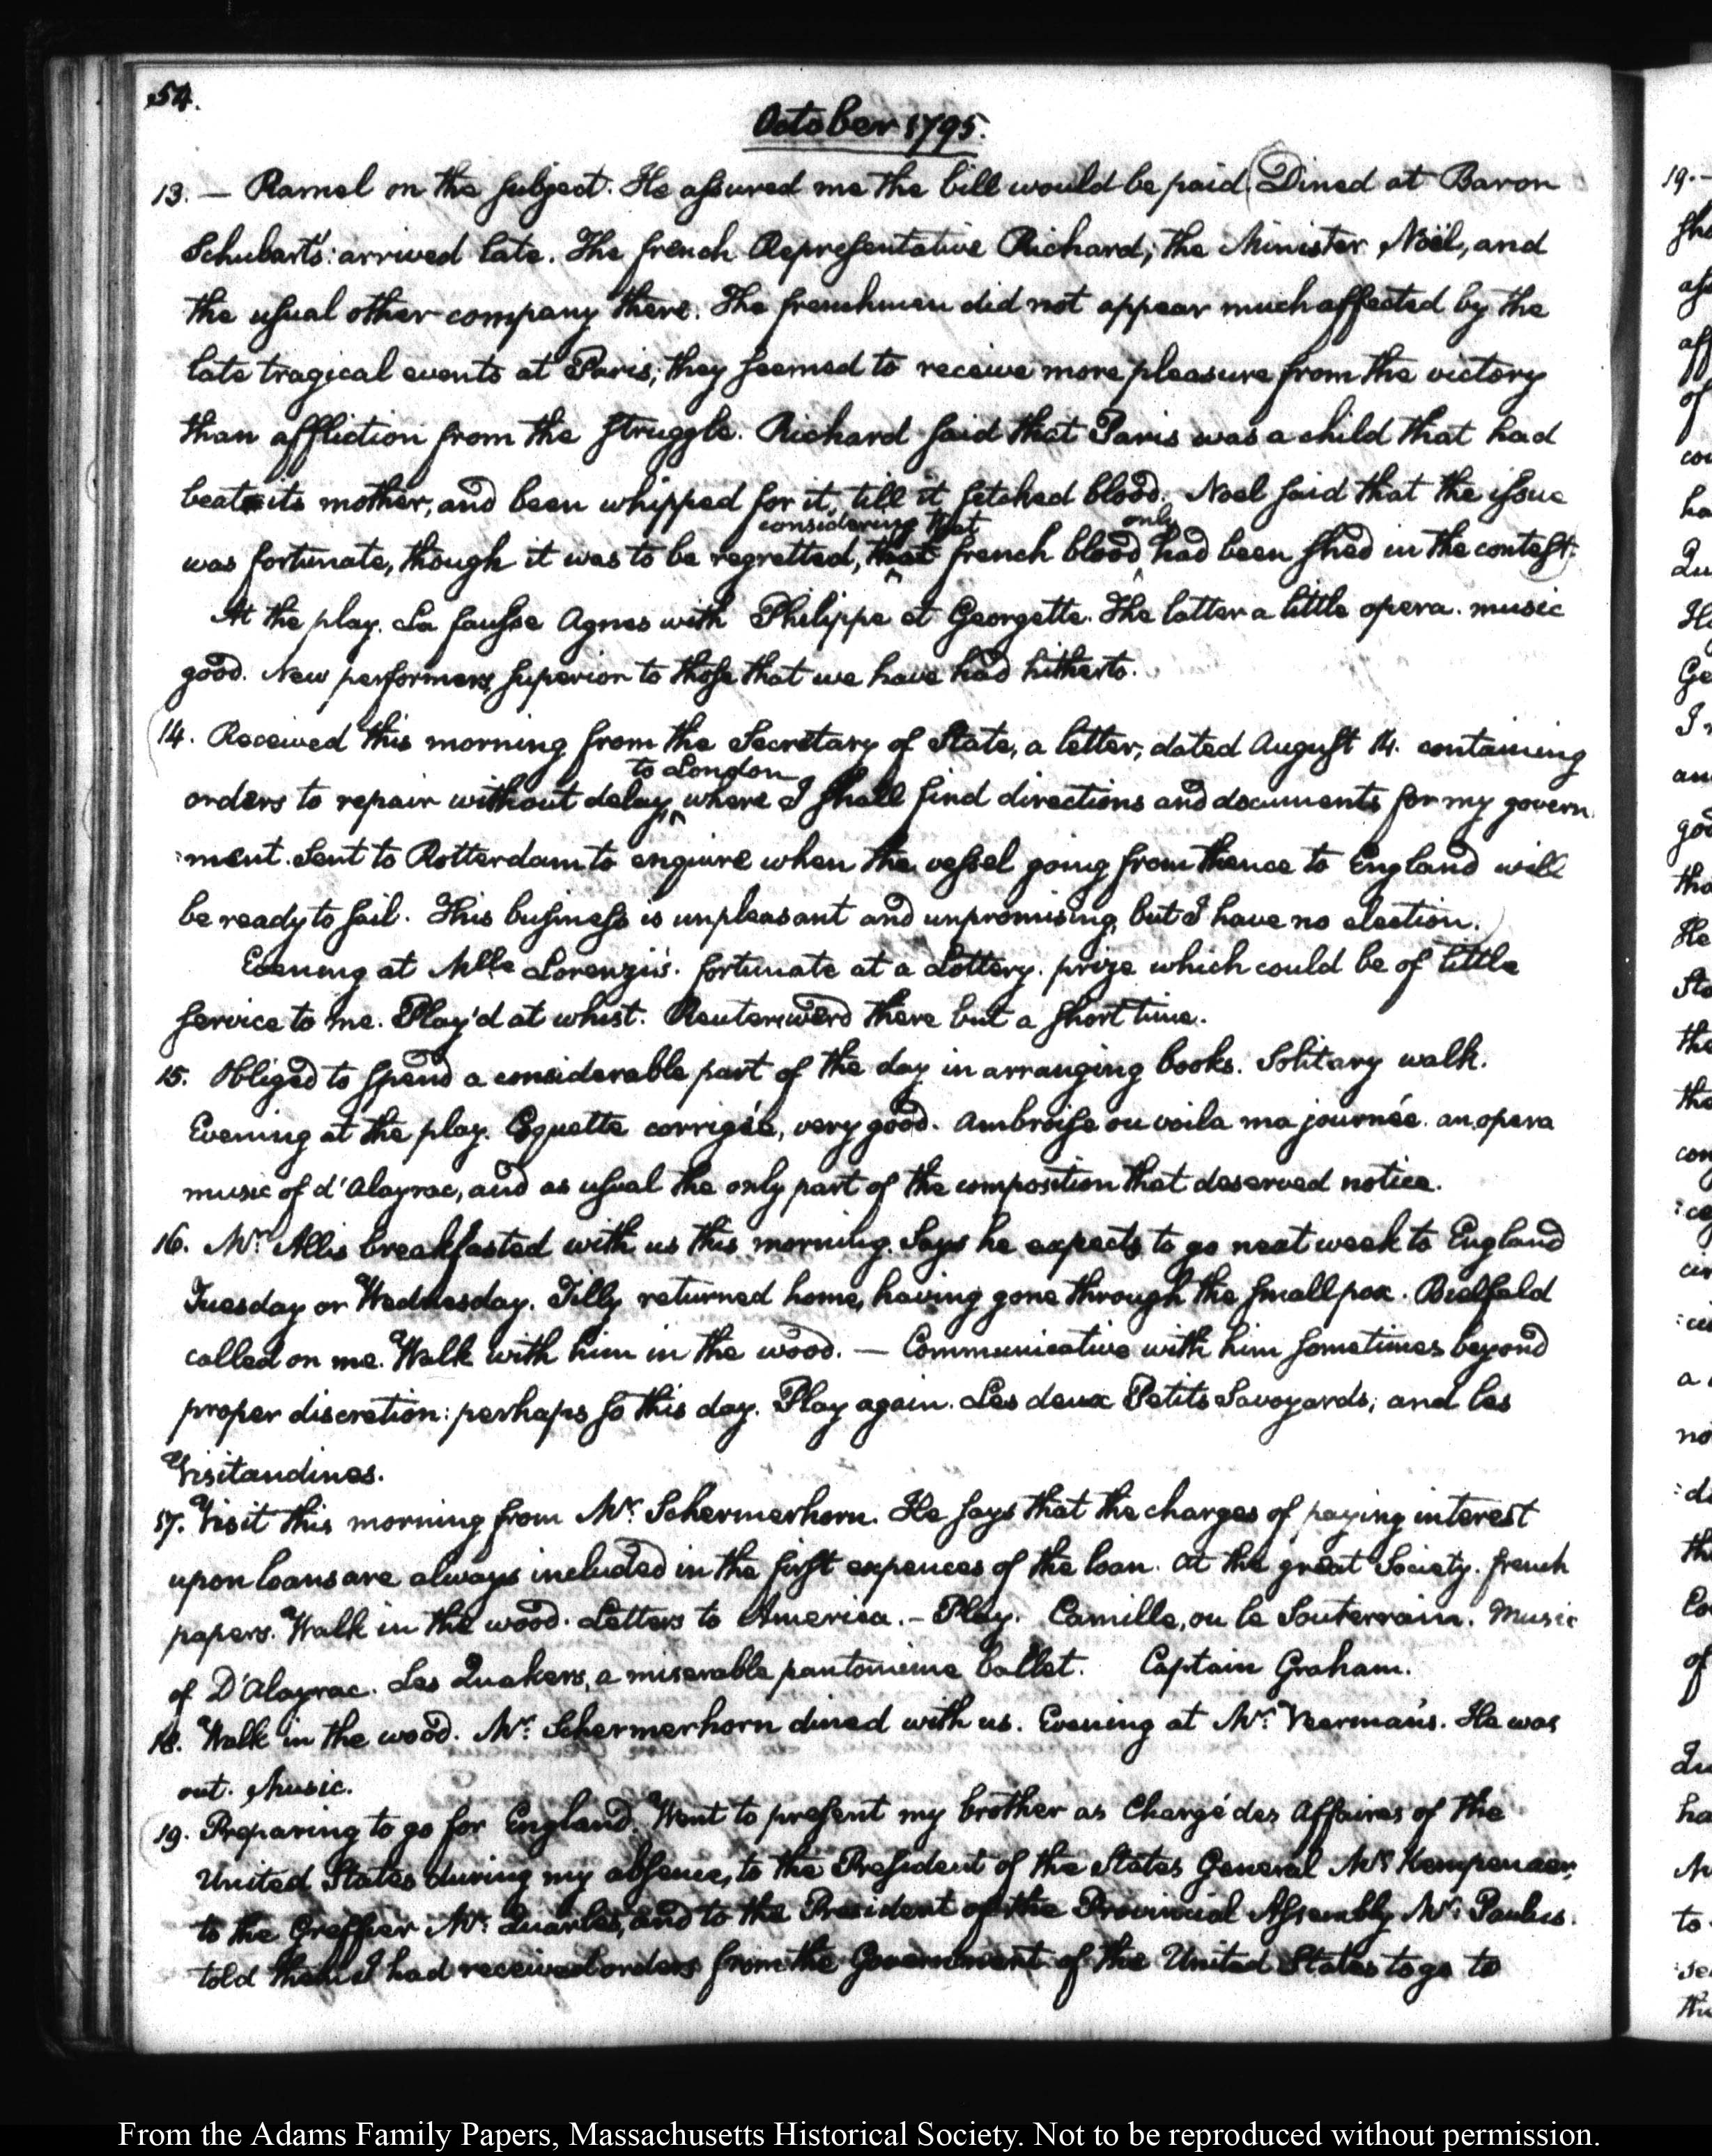 54.
October 1795.
13. — Ramel on the subject. He assured me the bill would be paid. (Dined at Baron
Schubart's: arrived late. The french Representative Richard, the Minister Noël, and
the usual other company there. The frenchmen did not appear much affected by the
late tragical events at Paris; they seemed to receive more pleasure from the victory
than affliction from the struggle. Richard said that Paris was a child that had
beat its mother, and been whipped for it, till it fetched blood. Noel said that the issue
considering that only
was fortunate, though it was to be regretted, that french blood, had been shed in the contest.)
At the play. La fausse Agnes with Philippe et Georgette. The latter a little opera. music
good. New performers, superior to those that we have had hitherto.
(14. Received this morning from the Secretary of State, a letter, dated August 14. containing
to London
orders to repair without delay, where I shall find directions and documents for my govern
:ment. Sent to Rotterdam to enquire when the vessel going from thence to England will
be ready to sail. This business is unpleasant and unpromising, but I have no election.)
Evening at Mlle Lorenzi's. fortunate at a Lottery. prize which could be of little
service to me. Play'd at whist. Reuterswerd there but a short time.
15. Obliged to spend a considerable part of the day in arranging books. Solitary walk.
Evening at the play. Coquette corrigée, very good. Ambroise ou voila ma journée. an opera
music of d'Alayrac, and as usual the only part of the composition that deserved notice.
16. Mr. Allis breakfasted with us this morning. Says he expects to go next week to England
Tuesday or Wednesday. Tilly returned home, having gone through the small pox. Bielfeld
called on me. Walk with him in the wood. — Communicative with him sometimes beyond
proper discretion: perhaps so this day. Play again. Les deux Petits Savoyards, and les
Visitandines.
17. Visit this morning from Mr. Schermerhorn. He says that the charges of paying interest
upon loans are always included in the first expences of the loan. At the great Society. french
papers. Walk in the wood. Letters to America. – Play. Camille, ou le Souterrain. Music
of D'Alayrac. Les Quakers, a miserable pantomime ballet. Captain Graham.
18. Walk in the wood. Mr. Schermerhorn dined with us. Evening at Mr. Veerman's. He was
out. Music.
(19. Preparing to go for England. Went to present my brother as Chargé des Affaires of the
United States during my absence, to the President of the States General Mr. Kempenaer,
to the Greffier Mr. Quarles, and to the President of the Provincial Assembly Mr. Paulus.
told them I had received orders from the Government of the United States to go to
From the Adams Family Papers, Massachusetts Historical Society. Not to be reproduced without permission.